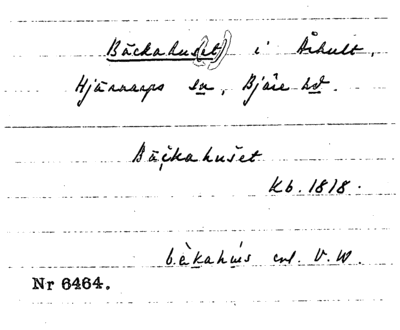 Bäckahus(et) i Århult,
Hjärnarps sn, Bjäre hd.
Bäckahuset
Kb. 1818.
bàkahús enl. V. W.
Nr 6464.